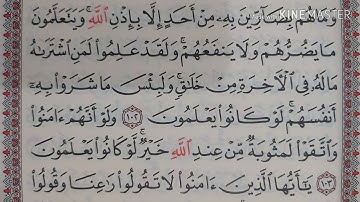 وَمَا هُم بِضَآرِّينَ بِهِۦ مِنْ أَحَدٍ إِلَّا بِإِذْنِ ٱللَّهِۚ وَيَتَعَلَّمُونَ
مَا يَضُرُّهُمْ وَلَا يَنفَعُهُمْۚ وَلَقَدْ عَلِمُوا۟ لَمَنِ ٱشْتَرَىٰهُ
مَا لَهُۥ فِى ٱلْأَخِرَةِ مِنْ خَلَٰقٍۚ وَلَبِئْسَ مَا شَرَوْا۟ بِهِۦٓ
أَنفُسَهُمْۚ لَوْ كَانُوا۟ يَعْلَمُونَ ١٠٢ وَلَوْ أَنَّهُمْ ءَامَنُوا۟
وَٱتَّقَوْا۟ لَمَثُوبَةٌ مِّنْ عِندِ ٱللَّهِ خَيْرٌۚ لَّوْ كَانُوا۟ يَعْلَمُونَ
١٠٣ يَٰٓأَيُّهَا ٱلَّذِينَ ءَامَنُوا۟ لَا تَقُولُوا۟ رَٰعِنَا وَقُولُوا۟
KINEMASTER